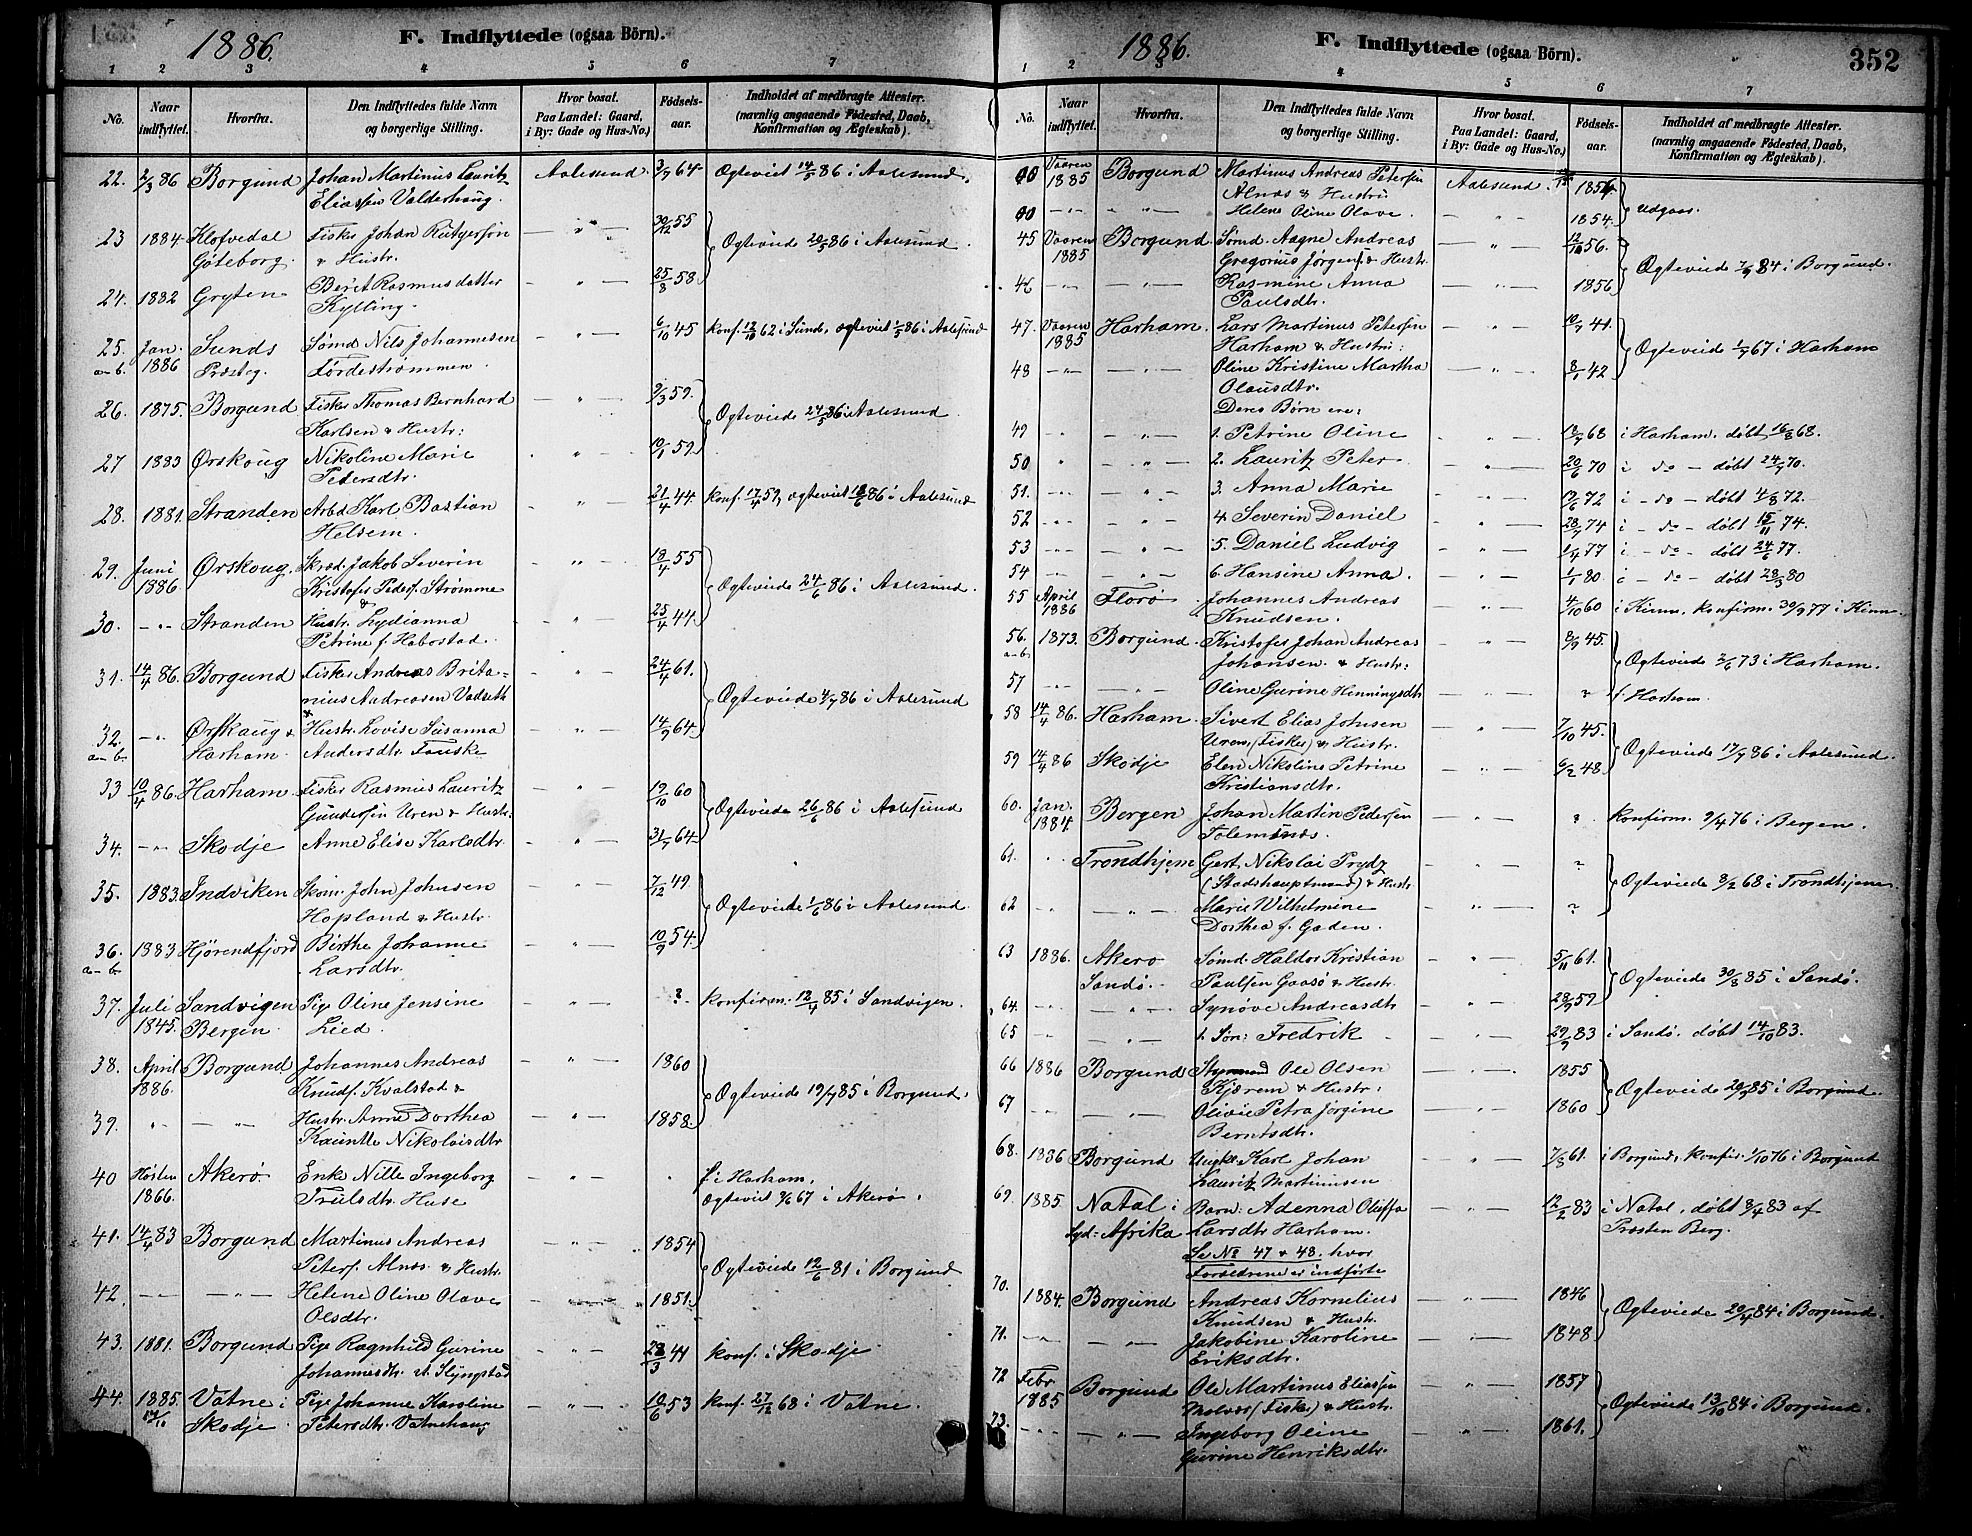 1886.
F. Indflyttede (ogsaa Börn).
1 2 3 4 5 6 7
No. Naar indflyttet. Hvorfra. Den Indflyttedes fulde Navn og borgerlige Stilling. Hvor bosat. Paa Landet: Gaard, i By: Gade og Hus-No.) Fødsels-aar. Indholdet af medbragte Attester. (navnlig angaaende Födested, Daab, Konfirmation og Ægteskab).
22. 2/3 86 Borgund Johan Martinus Lauritz Aalesund 3/9 64 Ogteviet 14/5 86 i Aalesund.
Eliassen Valderhaug.
23 1884. Klofvedal Fisker Johan Rütgerson — " — 30/12 55
Göteborg. & Hustr. Ogteviede 20/5 86 i Aalesund.
24. 1882 Gryten Beret Rasmusdatter — " — 25/8 58
Kylling.
25. Jan. Sunds Sømd Nils Johannesen — " — 6/10 45 Konf. 12/10 62 i Sund, ogteviet 1/5 86 i Aalesund
a-b. 1886 Præsteg. Førdestrømmen.
26. 1875. Borgund Fisker Thomas Bernhard — " — 9/3 59.
Karlsen & Hustr: Ogteviede 24/5 86 i Aalesund
27 1883 Ørskoug Nikoline Marie " — 10/1 59.
Petersdtr.
28. 1881. Stranden Arbd Karl Bastian " — 21/4 44 Konf. 17/4 59, ogteviet 18/6 86 i Aalesund
Helsem.
29. Juni Ørskoug. Skræd. Jakob Severin — " — 18/4 55
1886. Kristofer Peders. Strømme Ogteviede 24/6 86 i Aalesund.
&
30. — " — Stranden Hustr. Lydianna — " — 25/4 44.
Petrine f. Habostad.
31. 14/4 86. Borgund Fisker Andreas Brita- — " — 24/4 61.
nius Andreasen Vadseth Ogteviede 4/7 86 i Aalesund
&
32. — " — Ørskaug & Hustr. Lovise Susanna — " — 14/9 64
a-b Harham. Andersdtr. Fauske
33 10/4 86. Harham. Fisker Rasmus Lauritz " — 19/10 60
Gundersen Uren & Hustr: Ogteviede 26/6 86 i Aalesund
34. — " — Skodje Anne Elise Karlsdtr. " — 31/7 64
35. 1883. Indviken Skom. John Johnsen — " — 7/12 49
Hopland & Hustr. Ogteviede 1/6 86 i Aalesund.
36. 1883 Hjørendfjord Birthe Johanne " — 10/9 54.
a-b Larsdtr.
37. Juli Sandvigen Pige Oline Jensine — " — ? Konfirm. 12/4 85 i Sandvigen.
1845. Bergen. Lied.
38. April Borgund Johannes Andreas — " — 1860
1886. Knuds. Kvalstad & Ogteviede 19/7 85 i Borgund.
39. " — " — Hustr. Anne Dorthea — " — 1858.
Nikolaisdtr
40 Høsten Akerø. Enke Nille Ingeborg — " — . f. i Harham.
1866. Trulsdtr. Huse ogteviet 3/6 67 i Akerø.
41. 14/4 83 Borgund Martinus Andreas — " — 1854
Peters. Alnæs & Hustr. Ogteviede 12/6 81 i Borgund
42. — — — " — Helene Oline Olave 1851.
Olsdtr.
43. 1881. Borgund Pige Ragnhild Gurine — " — 28/3 41 Konf. i Skodje
Johannesdtr.
44. 1885. Vatne i Pige Johanne Karoline — " — 10/6 53 Konf. 27/12 68 i Vatne.
Skodje Petersdtr. Vatnehaug
1886. F. Indflyttede (ogsaa Börn). 352
1 2 3 4 5 6 7
No. Naar indflyttet. Hvorfra. Den Indflyttedes fulde Navn og borgerlige Stilling. Hvor bosat. Paa Landet: Gaard, i By: Gade og Hus-No.) Fødsels-aar. Indholdet af medbragte Attester. (navnlig angaaende Födested, Daab, Konfirmation og Ægteskab).
00 Vaaren Borgund Martinus Andreas Petersen Aalesund. 1854.
1885 Alnæs & Hustru Udgaar.
00 — " — — " — Helene Oline Olave. — " — 1854.
45 Vaaren Borgund. Sømd. Aagne Andreas — " — 56.
1885 Gregorius Jørgens. & Hustr. Ogteviede 7/9 84 i Borgund.
46 — " — — " — Rasmine Anna — " — 1856
Paulsdtr.
47. Vaaren Harham. Lars Martinus Petersen — " — 10/7 41.
1885 Harham & Hustru: Ogteviede 1/7 67 i Harham
48 — " — — " — Oline Kristine Martha — " — 8/1 42
Olausdtr.
Deres Børn ere:
49 — " — 1. Petrine Oline " — 13/7 68 i Harham. døbt 16/8 68.
50 " — " — 2. Lauritz Peter — " — 20/6 70 i — do — døbt 24/7 70.
51. — " — 3. Anna Marie — " — 19/6 72 i — do — døbt 4/8 72.
52 — " — 4. Severin Daniel — " — 28/9 74 i — do — døbt 15/11 74.
53 — " — 5. Daniel Ludvig — " — 77 i — do — døbt 24/6 77.
54 — " — 6. Hansine Anna. — " — 1/1 80 i — do — døbt 28/3 80
55 April Florø Johannes Andreas — " — 4/10 60 i Kinn, Konfirm. 30/9 77 i Kinn.
1886 Knudsen.
56. 1873. Borgund. Kristofer Johan Andreas — " — 8/9 45.
a-b Johansen. & Hustr: Ogteviede 2/6 73 i Harham.
57 — " — — " — Oline Gurine Henningsdtr ? f. Harham.
58 14/4 86. Harham. Sivert Elias Johnsen — " — 7/10 45.
Uren, (Fisker) & Hustr. Ogteviede 17/7 86 i Aalesund.
59 14/4 86 Skodje Elen Nikoline Petrine — " — 6/2 48
Kristiansdtr.
60. Jan. Bergen Johan Martin Pedersen — " — ? Konfirm. 2/4 76 i Bergen.
1884.
61. " Trondhjem Gert Nikolai Prydz — " — ?
(Stadshauptmand) & Hustr. Ogteviede 8/2 68 i Trondhjem
62 — — " — Marie Wilhelmine — " — ?
Dorthea f. Gaden.
63 1886. Akerø Sømd. Haldor Kristian — " — 5/11 61.
Sandø. Paulsen Gaasø & Hustr. Ogteviede 30/8 85 i Sandø.
64. — " — — " — Synøve Andreasdtr — " — 28/9 59
65 — " — — " — 1. Søn: Fredrik — " — 29/9 83 i Sandø. døbt 14/10 83.
66 1886 Borgund Styrmand Ole Olsen — " — 1855
Kjærem & Hustr: Ogteviede 20/9 85 i Borgund.
67 — " — — " — Olivie Petra Jørgine — " — 1860
Berntsdtr.
68. 1886 Borgund Ungkl. Karl Johan — " — 7/3 61. i Borgund, konfir. 1/10 76 i Borgund
Lauritz Martinusen
69. 1885. Natal i Barn: Adenna Oluffa — " — 12/2 83 i Natal, døbt 8/4 83 af
Syd-Afrika Larsdtr Harham. Præsten Berg.
Se No 47 & 48. hvor
Forældrene er indførte
70. 1884. Borgund Andreas Kornelius — " — 1846
Knudsen & Hustr. Ogteviede 20/4 84 i Borgund.
71. — " — — " — Jakobine Karoline — " — 1848
Eriksdtr.
72 Febr Borgund Ole Martinus Eliassen — " — 1857
1885 Molvær (Fisker) & Hustr. Ogteviede 13/10 84 i Borgund.
73. — " — — " — Ingeborg Oline — " — 1861.
Gurine Henriksdtr.